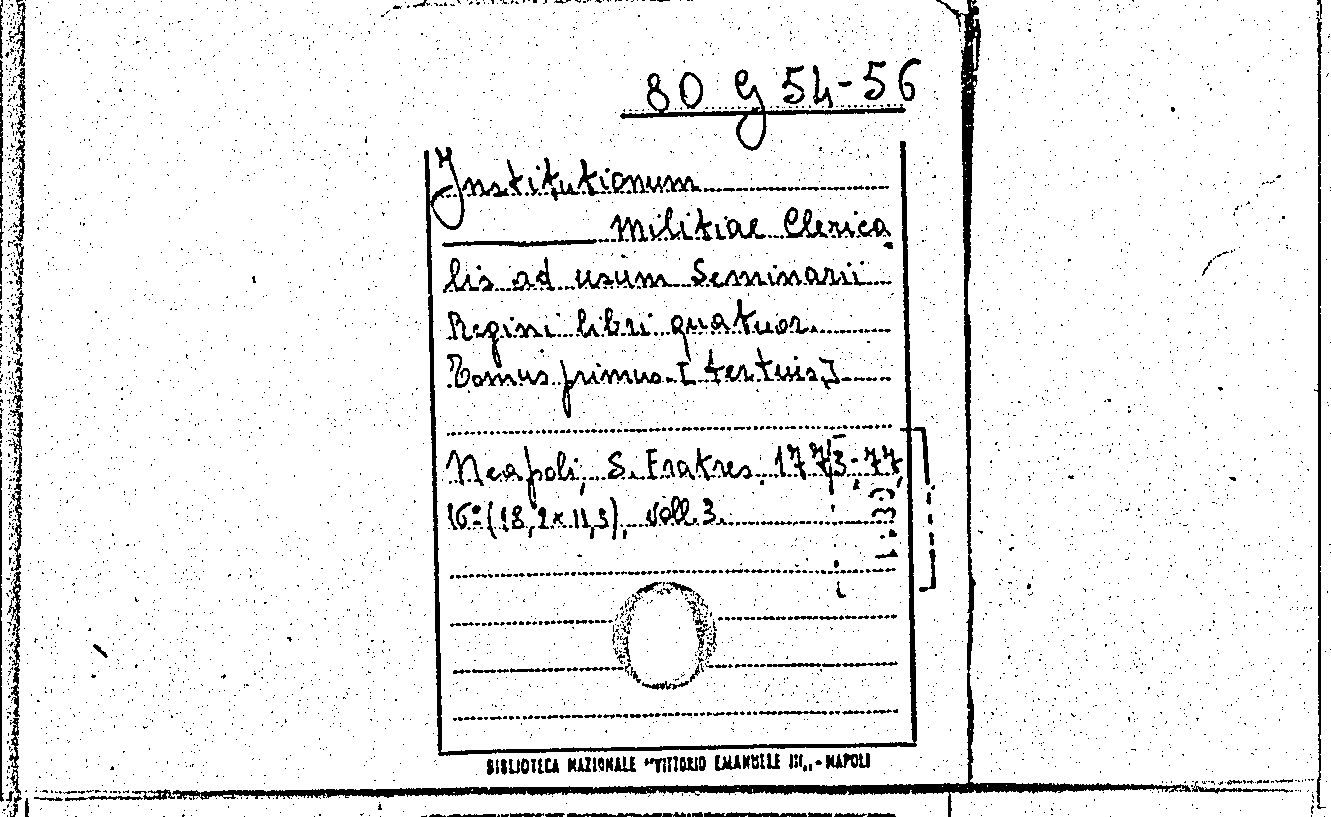 80 G 54-56
Institutionum
Militiae Clerica
lis ad usum Seminarii
Regini libri quatuor.
Tomus primus [tertuis]
Neapoli, S. Fratres, 1773-77,
16° (18,2x11,3), voll. 3.
BIBLIOTECA NAZIONALE "VITTORIO EMANUELE III,, - NAPOLI